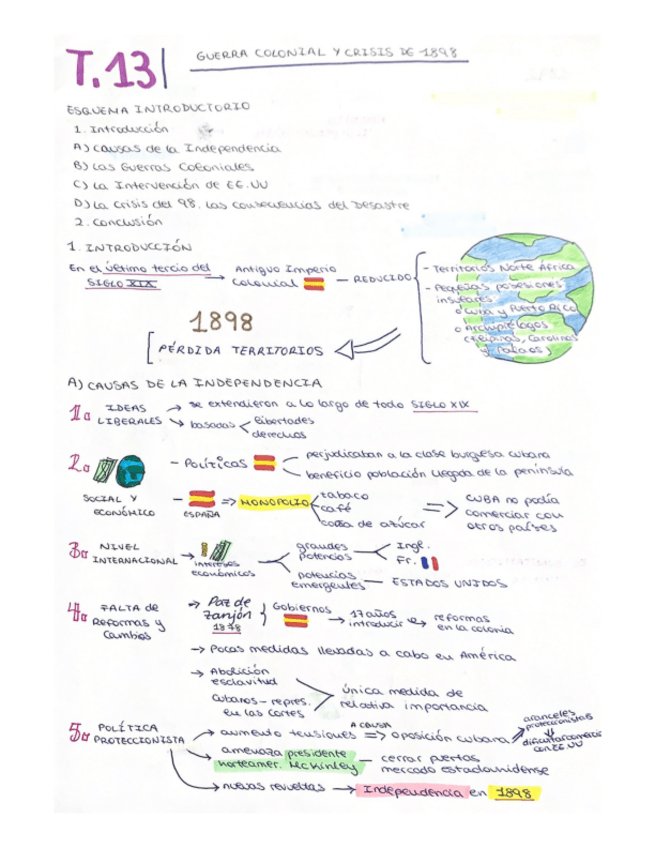 T.13
GUERRA COLONIAL Y CRISIS DE 1898
ESQUEMA INTRODUCTORIO
1. Introducción
A) Causas de la Independencia
B) Las Guerras Coloniales
C) La Intervención de EE.UU
D) La Crisis del 98. Las consecuencias del Desastre
2. Conclusión
1. INTRODUCCIÓN
En el último tercio del SIGLO XIX → Antiguo Imperio Colonial — REDUCIDO
- Territorios Norte África
- Pequeñas posesiones insulares:
o Cuba y Puerto Rico
o Archipiélagos
(Filipinas, Carolinas
y Palaos)
1898
PÉRDIDA TERRITORIOS
A) CAUSAS DE LA INDEPENDENCIA
1a IDEAS LIBERALES → se extendieron a lo largo de todo SIGLO XIX
→ basadas < libertades
derechos
2a SOCIAL Y ECONÓMICO
- Políticas
perjudicaban a la clase burguesa cubana
beneficio población llegada de la península
- ESPAÑA => MONOPOLIO
tabaco
café
caña de azúcar
=> CUBA no podía
comerciar con
otros países
3a NIVEL INTERNACIONAL → intereses económicos
grandes potencias
Ingl.
Fr.
potencias emergentes — ESTADOS UNIDOS
4a FALTA de Reformas y Cambios
→ Paz de Zanjón 1878 } Gobiernos → 17 años introducir → reformas en la colonia
→ Pocas medidas llevadas a cabo en América
→ Abolición esclavitud
Cubanos - repres. en las Cortes
única medida de
relativa importancia
5a POLÍTICA PROTECCIONISTA
→ aumento tensiones => A CAUSA oposición cubana
aranceles
proteccionistas
dificultar comercio
con EE.UU
→ amenaza presidente norteamer. McKinley — cerrar puertas mercado estadounidense
→ nuevas revueltas → Independencia en 1898